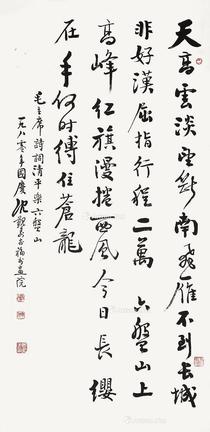 天高雲淡望斷南飛雁不到長城
非好漢屈指行程二萬 六盤山上
高峰紅旗漫捲西風今日長纓
在手何時縛住蒼龍
毛主席詩詞清平樂六盤山
一九八零年國慶沈覲壽 福州畫院